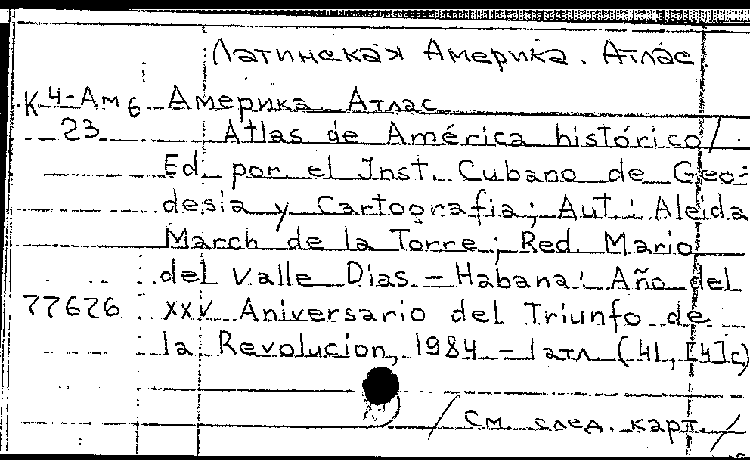 Латинская Америка. Атлас
К 4-Ам6 Америка. Атлас
23 Atlas de América histórico /
Ed. por el Inst. Cubano de Geo-
desia y Cartografia; Aut.: Aleida
March de la Torre; Red. Mario
del Valle Dias. – Habana: Año del
77626 XXV Aniversario del Triunfo de
la Revolucion, 1984 – 1 атл (41, [4] c)
/ См. след. карт. /